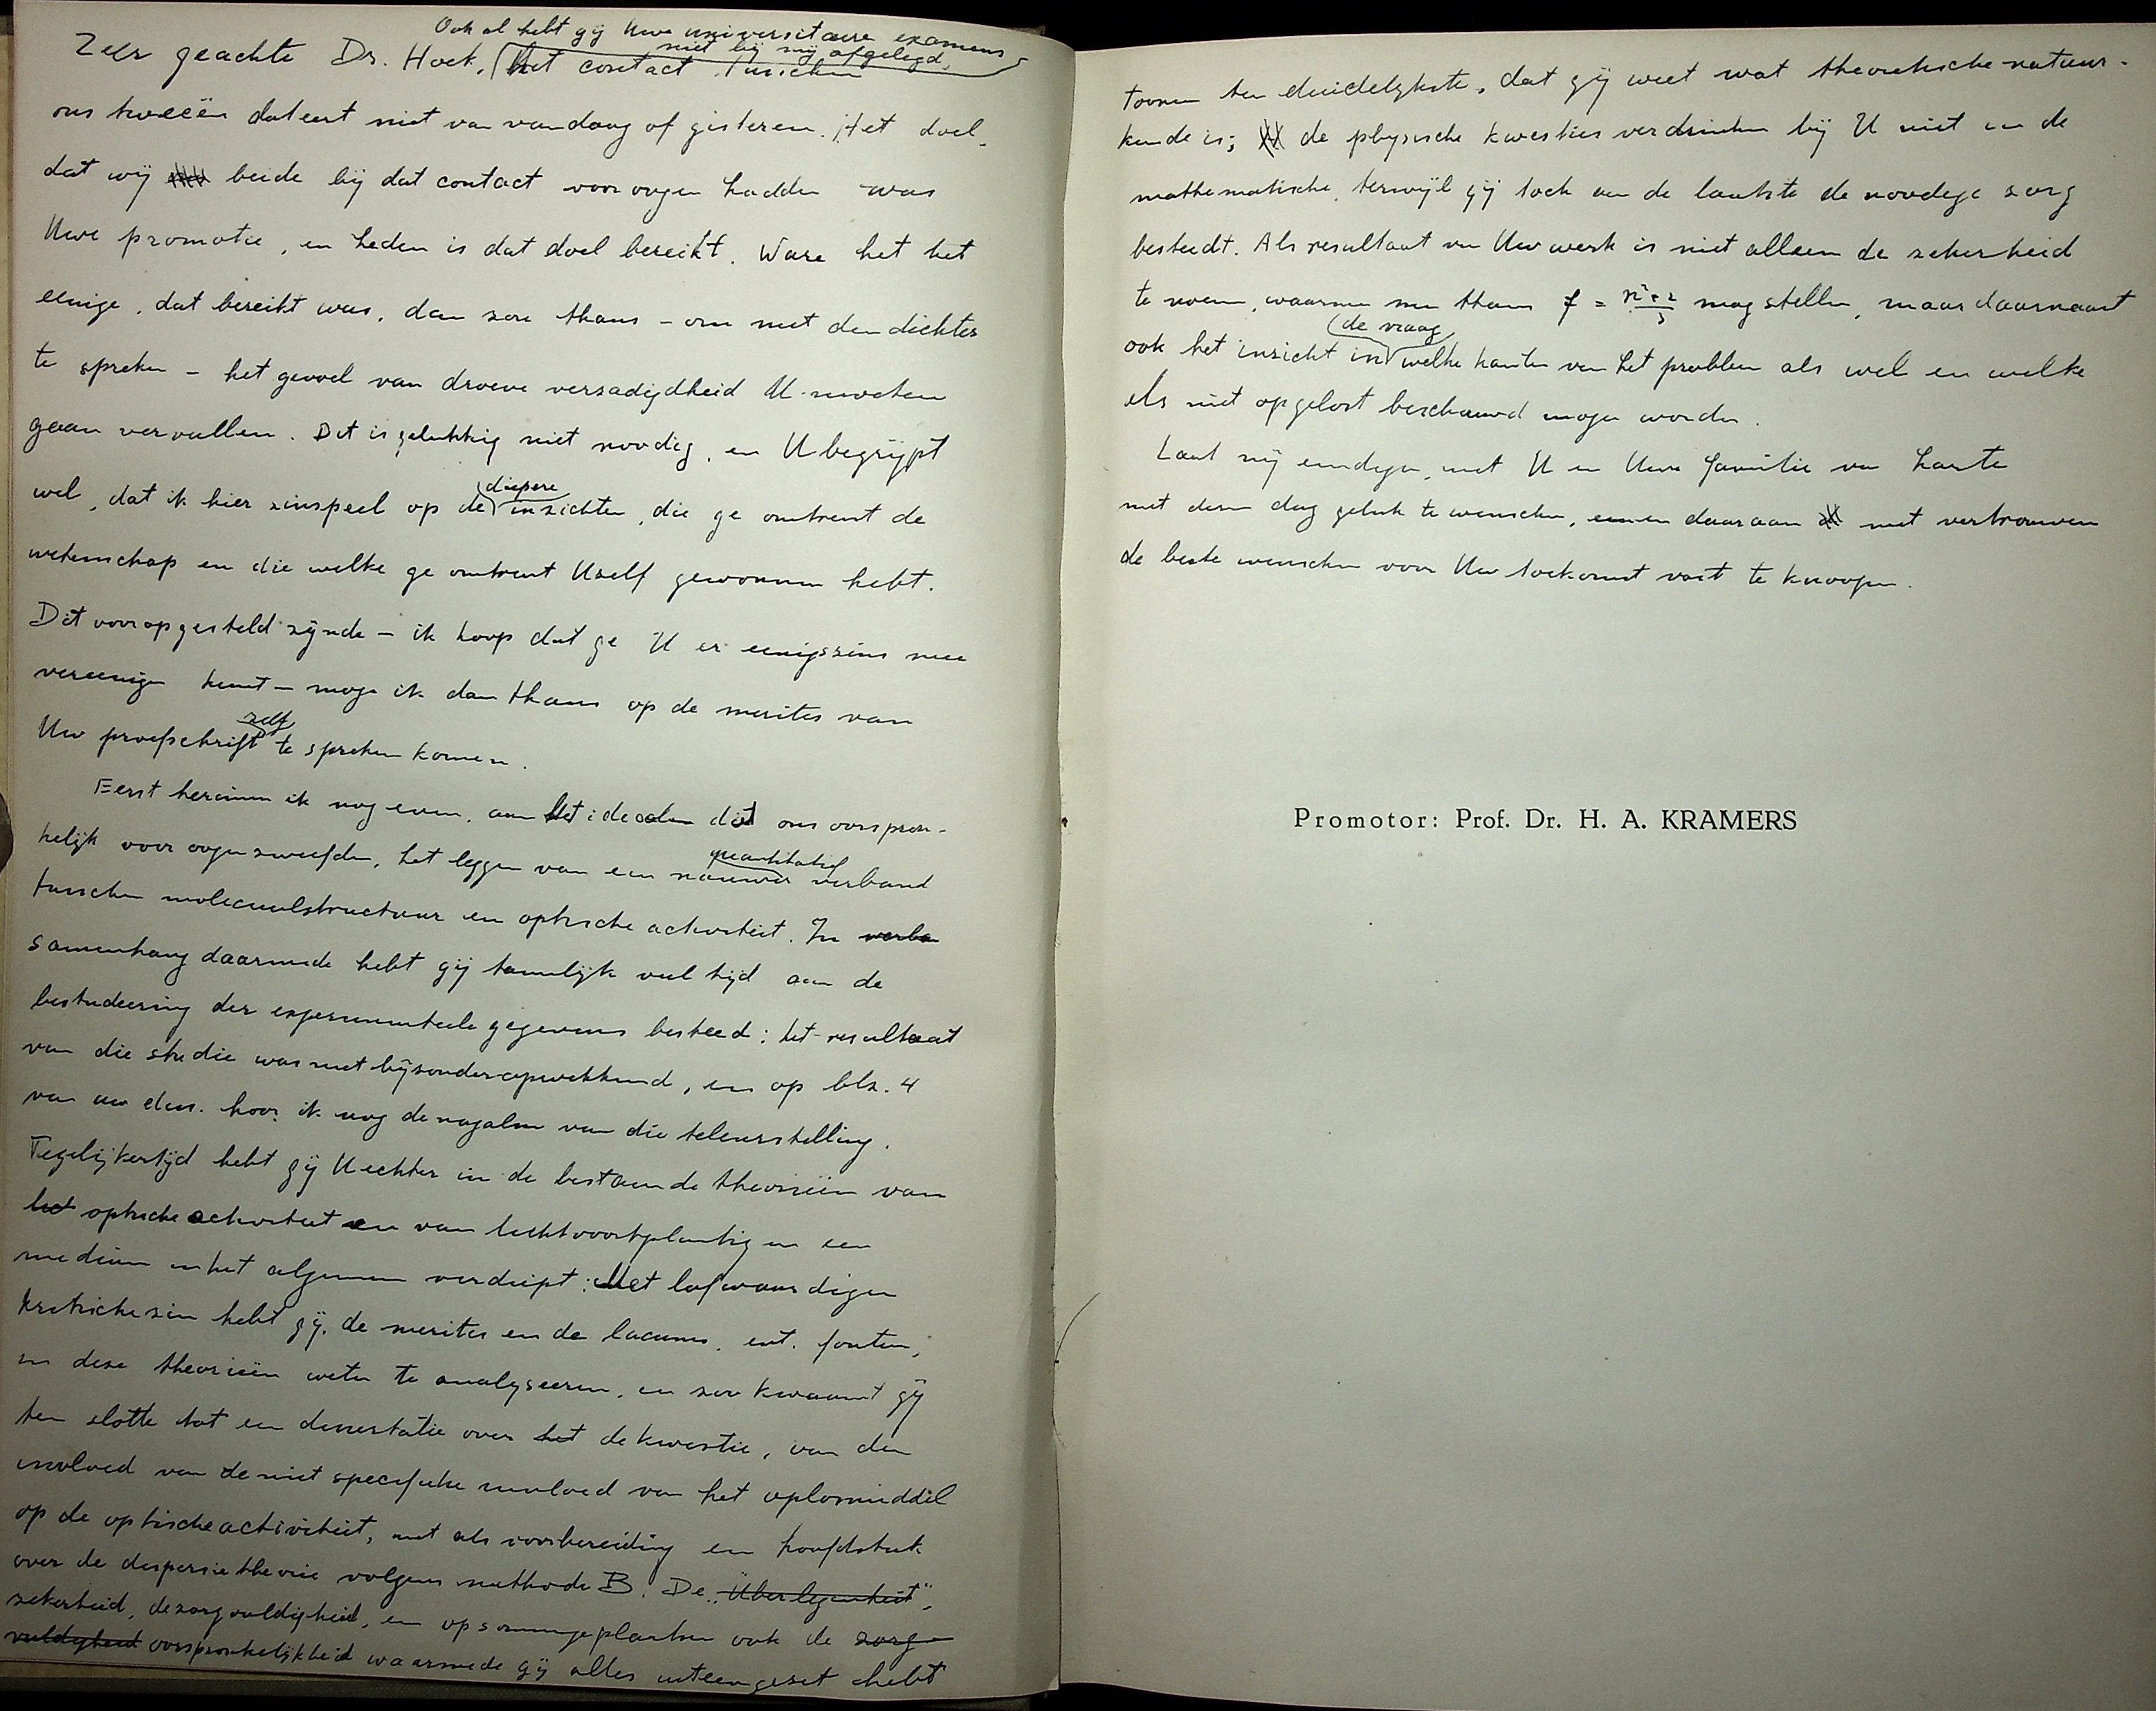 Ook al hebt gij Uwe universitaire examens
niet bij mij afgelegd,
Zeer geachte Dr. Hoek, het contact tusschen
ons tweeën dateert niet van vandaag of gisteren. Het doel,
dat wij beide bij dat contact voor oogen hadden was
Uwe promotie, en heden is dat doel bereikt. Ware het het
eenige, dat bereikt was, dan zou thans – om met den dichter
te spreken – het gevoel van droeve verzadigdheid U moeten
gaan vervullen. Dit is gelukkig niet noodig, en U begrijpt
diepere
wel, dat ik hier zinspeel op de inzichten, die ge omtrent de
wetenschap en die welke ge omtrent Uzelf gewonnen hebt.
Dit vooropgesteld zijnde – ik hoop dat ge U er eenigszins mee
vereenigen kunt – moge ik dan thans op de merites van
zelf
Uw proefschrift te spreken komen.
Eerst herinner ik nog even, aan het ideaal dat ons oorspron-
kelijk voor oogen zweefde, het leggen van een nauwer verband
quantitatief
tusschen molecuulstructuur en optische activiteit. In verba
samenhang daarmede hebt gij tamelijk veel tijd aan de
bestudeering der experimenteele gegevens besteed; het resultaat
van die studie was niet bijzonder opwekkend, en op blz. 4
van uw diss. hoor ik nog de nagalm van die teleurstelling.
Tegelijkertijd hebt gij U echter in de bestaande theorieën van
het optische activiteit en van lichtvoortplanting in een
medium in het algemeen verdiept; Met lofwaardigen
kritische zin hebt gij, de merites en de lacunes, ent. fouten,
in deze theorieën weten te analyseeren, en zoo kwaamt gij
ten slotte tot een dissertatie over het de kwestie, van den
invloed van de niet specifieke invloed van het oplosmiddel
op de optische activiteit, met als voorbereiding een hoofdstuk
over de dispersietheorie volgens methode B. De "Überlegenheit",
zekerheid, de zorgvuldigheid, en op sommige plaatsen ook de zorg-
vuldigheid oorspronkelijkheid waarmede gij alles uiteengezet hebt
toonen ten duidelijkste, dat gij weet wat theoretische natuur-
kunde is; de physische kwesties verdrinken bij U niet in de
mathematische, terwijl gij toch aan de laatste de noodige zorg
besteedt. Als resultaat van Uw werk is niet alleen de zekerheid
te noemen, waarmee men thans f = n²+2/3 mag stellen, maar daarnaast
(de vraag)
ook het inzicht in welke kanten van het probleem als wel en welke
als niet opgelost beschouwd mogen worden.
Laat mij eindigen, met U en Uwe familie van harte
met dezen dag geluk te wenschen, en daaraan met vertrouwen
de beste wenschen voor Uw toekomst vast te knoopen.
Promotor: Prof. Dr. H. A. KRAMERS